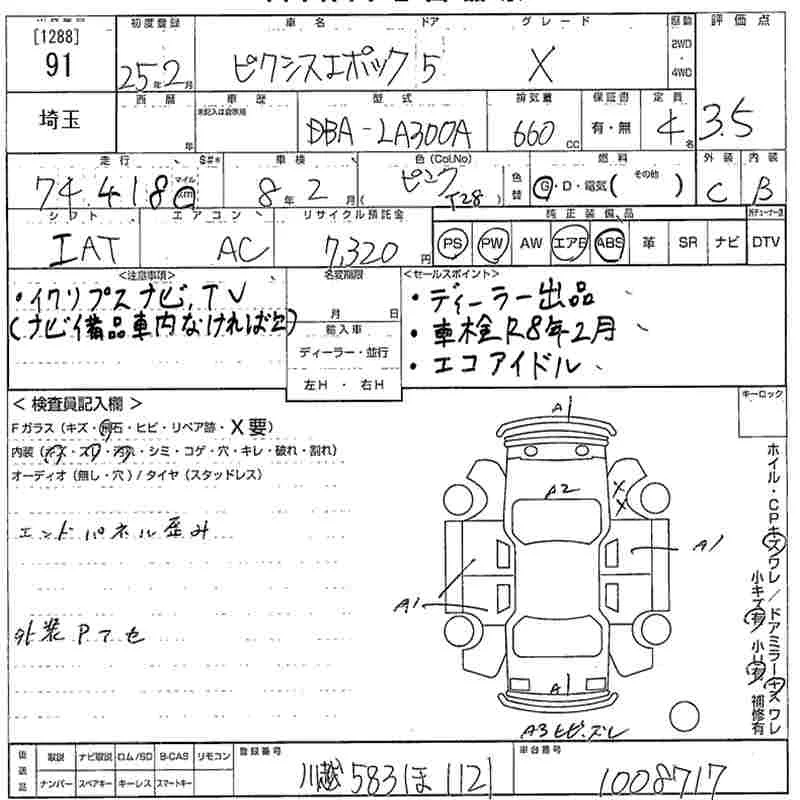 [1288]
91
初度登録
25年2月
車名
ピクシスエポック
ドア
5
グレード
X
駆動
2WD
・
4WD
評価点
3.5
埼玉
西暦
年
車歴
未記入は自家用
型式
DBA-LA300A
排気量
660 CC
保証書
有・無
定員
4名
走行
74,418
マイル
km
S#*
車検
8年2月
色(Col.No)
(ピンク T28)
色替
燃料
G・D・電気(その他)
外装
C
内装
B
シフト
IAT
エアコン
AC
リサイクル預託金
7,320円
純正装備品
PS PW AW エアB ABS 革 SR ナビ DTV
<注意事項>
・イクリプスナビ、TV
(ナビ備品車内なければ欠)
名変期限
月 日
輸入車
ディーラー・並行
左H・右H
<セールスポイント>
・ディーラー出品
・車検R8年2月
・エコアイドル
<検査員記入欄>
Fガラス(キズ・飛石・ヒビ・リペア跡・X要)
内装(キズ・スレ・汚れ・シミ・コゲ・穴・キレ・破れ・割れ)
オーディオ(無し・穴)/タイヤ(スタッドレス)
エンドパネル歪み
外装Pアセ
キーロック
A1
A2
X
X
A1
A1
A1
A3ヒビ、ズレ
ホイル・CPキズワレ/ドアミラーキズワレ
小キズ有 小U有 補修有
後送品
取説 ナビ取説 ロム/SD B-CAS リモコン
ナンバー スペアキー キーレス スマートキー
登録番号
川越583ほ112
車台番号
1008717